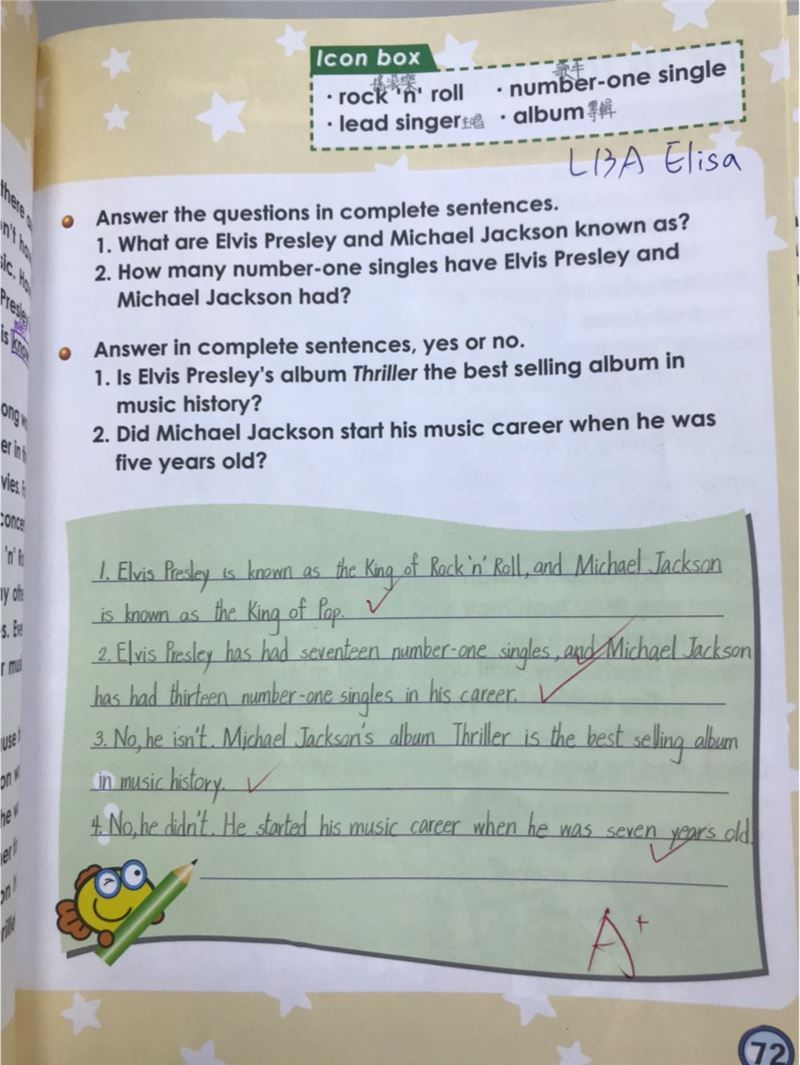 Icon box
搖滾樂
· rock 'n' roll
· lead singer 主唱
· number-one single
· album 專輯
L13A Elisa
Answer the questions in complete sentences.
1. What are Elvis Presley and Michael Jackson known as?
2. How many number-one singles have Elvis Presley and
Michael Jackson had?
Answer in complete sentences, yes or no.
1. Is Elvis Presley's album Thriller the best selling album in
music history?
2. Did Michael Jackson start his music career when he was
five years old?
1. Elvis Presley is known as the King of Rock 'n' Roll, and Michael Jackson
is known as the King of Pop.
2. Elvis Presley has had seventeen number-one singles, and Michael Jackson
has had thirteen number-one singles in his career.
3. No, he isn't. Michael Jackson's album Thriller is the best selling album
in music history.
4. No, he didn't. He started his music career when he was seven years old.
A+
72